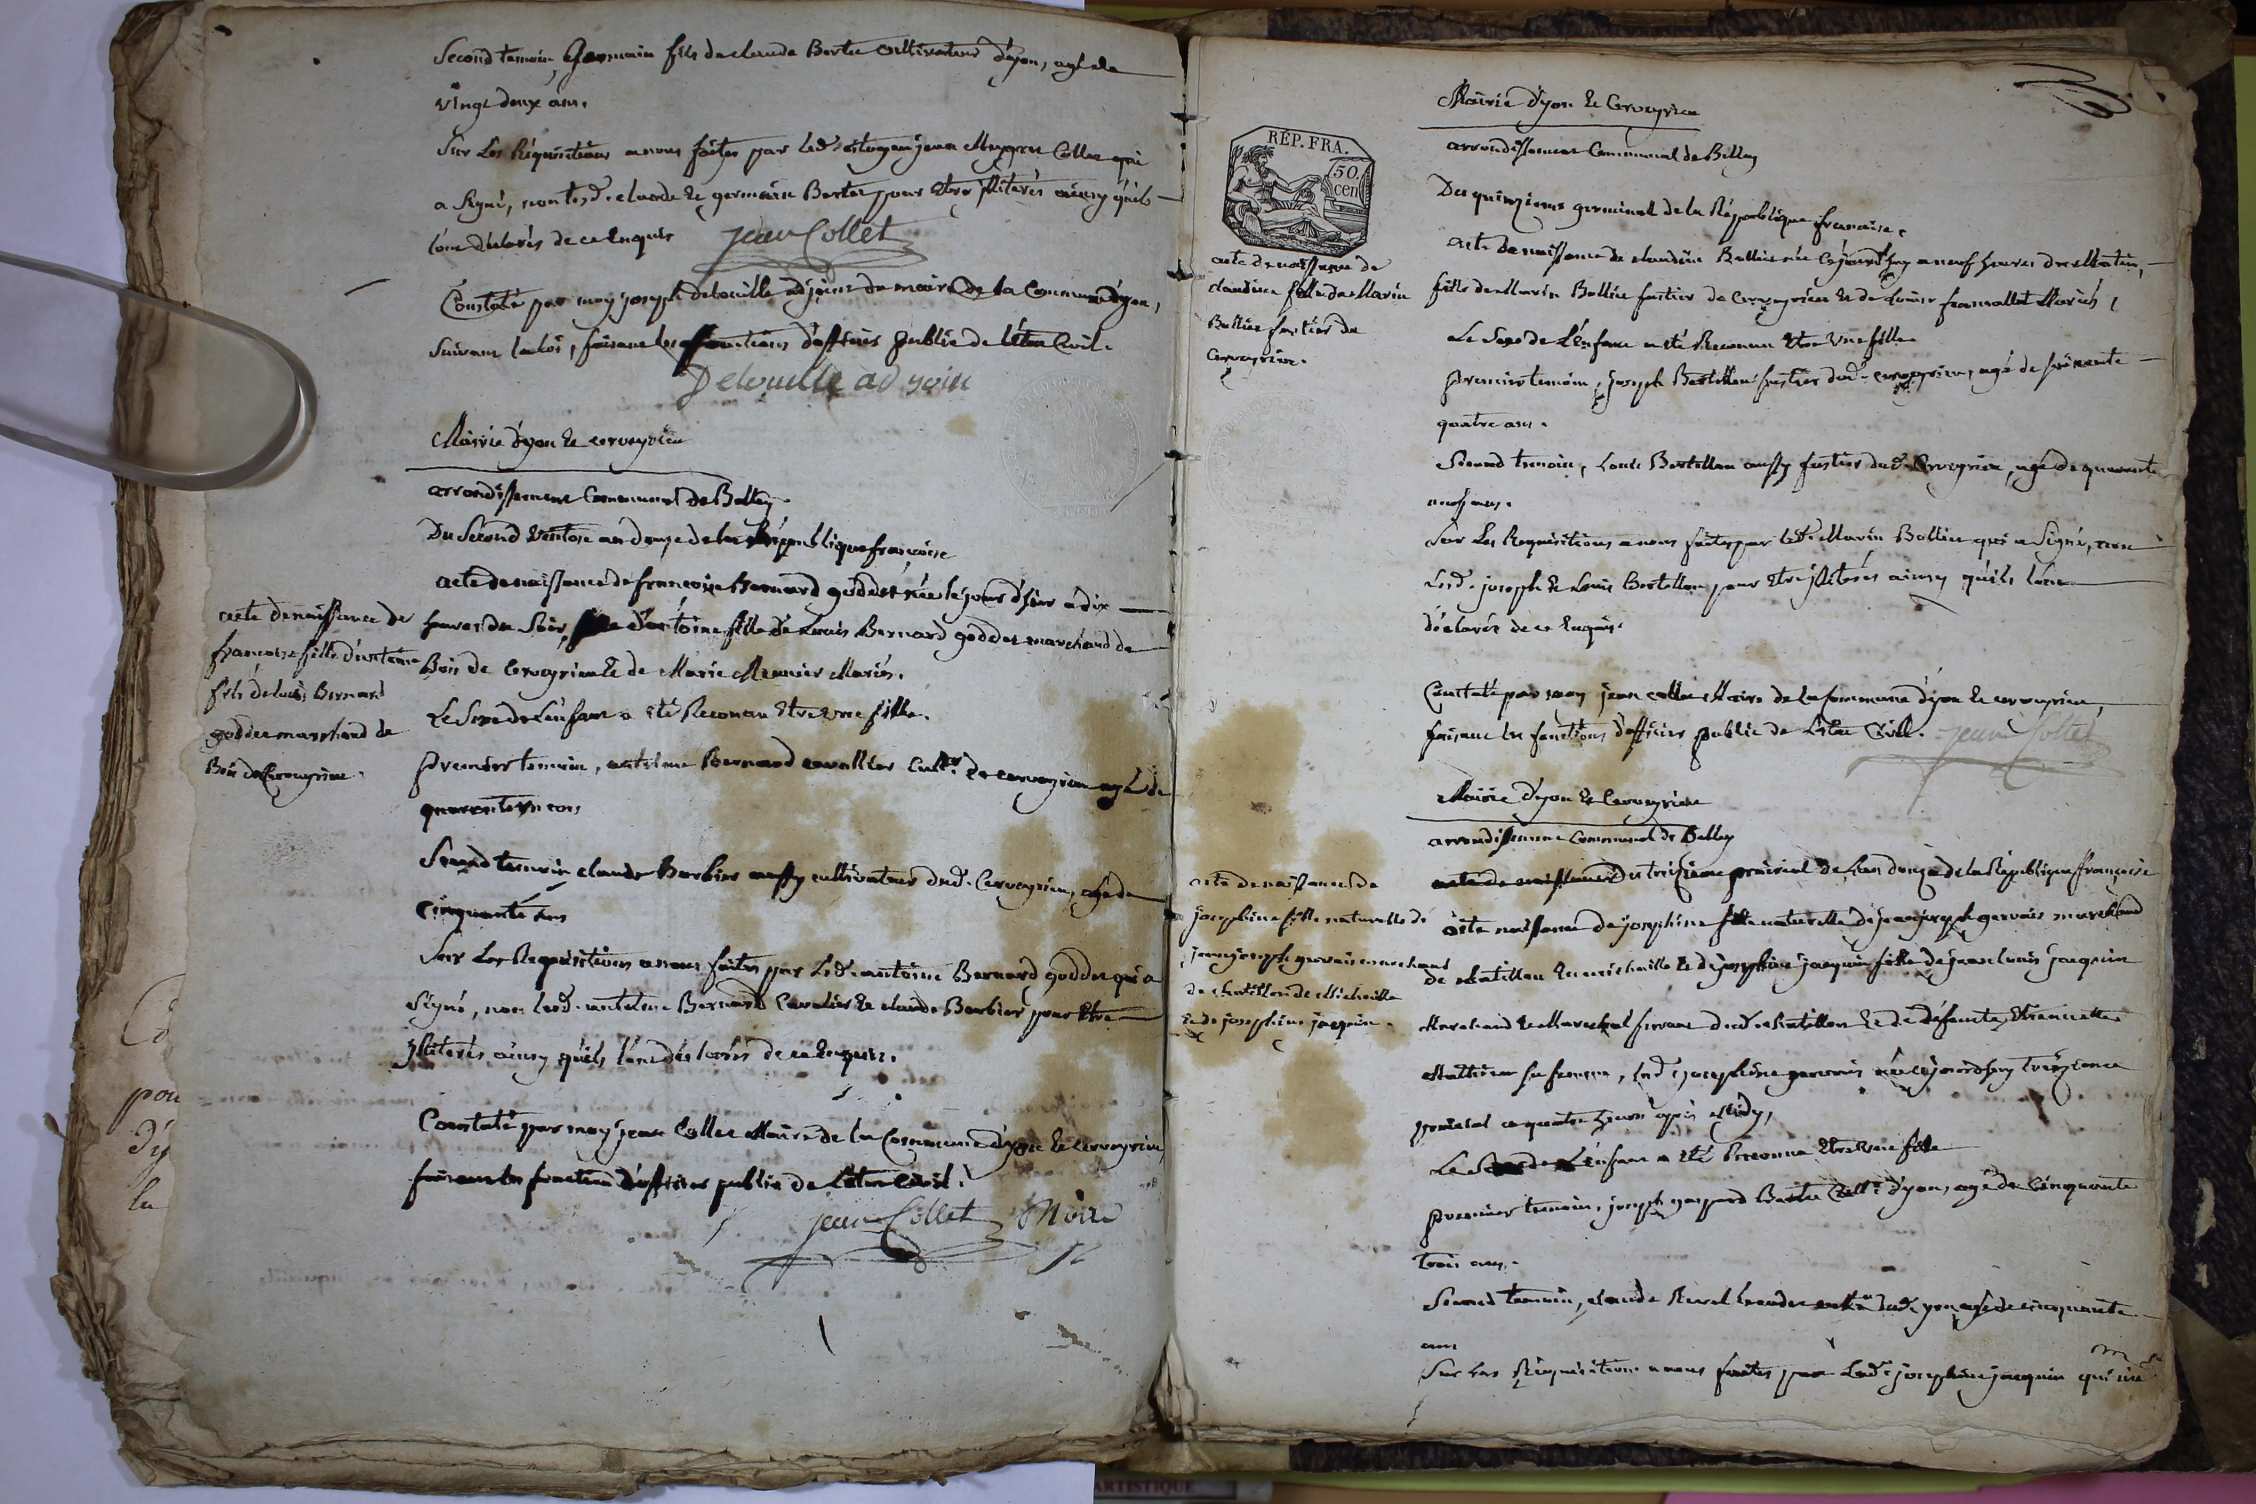 Second temoin, Germain fils de claude Bertet cultivateur d'yon, agé de
vingt deux ans.
Sur Les Réquisitions a nous faites par led. citoyen jean Collet qui
a signé, non lesd. claude et germain Bertet pour etre illiterés ainsy qu'ils
l'ont déclarés de ce Enquis
jean Collet
Constaté par moy joseph delouille adjoint du maire de la Commune d'yon,
suivant la loi, faisant les fonctions d'officier public de l'état Civil.
Delouille adjoint
Mairie d'yon et cerveyrieu
arrondissement Communal de Belley.
Du Second Ventose an douze de la République française
acte de naissance de françoise Bernard goddet née le jour d'hier a dix
heures du Soir, d'antoine fille de Louis Bernard goddet marchand de
Bois de Cerveyrieu et de Marie Meunier Mariés.
Le Sexe de L'enfant a été Reconnu Etre une fille.
premier temoin, antelme Bernard cavallier Cult.r de cerveyrieu agé de
quarante ans
Second temoin claude Barbier aussy cultivateur dud. Cerveyrieu, agé de
cinquante ans
Sur Les Requisitions a nous faites par Led. antoine Bernard goddet qui a
Signé, non lesd. antelme Bernard Cavalier et claude Barbier pour Etre
illiterés ainsy qu'ils l'ont déclarés de ce Enquis.
Constaté par moy jean Collet Maire de la Commune d'yon et cerveyrieu,
faisant les fonction d'officier public de l'état Civil.
jean Collet Maire
acte de naissance de
francoise fille d'antoine
fils de Louis Bernard
goddet marchand de
Bois de Cerveyrieu.
Mairie d'yon et Cerveyrieu
arrondissement Communal de Belley
RÉP. FRA.
50.
cen
Du quinzieme germinal de la République francaise.
acte de naissance de claudine Bollin née cejourd'huy a neuf heures du Matin,
fille de Marin Bollin fustier de Cerveyrieu et de Louise Mariés,
Le Sexe de L'enfant a été Reconnu Etre une fille
premier temoin, joseph Bertillon fustier dud. cerveyrieu, agé de soixante
quatre ans.
Second temoin, Louis Bertillon aussy fustier dud. Cerveyrieu, agé de quarante
neuf ans.
Sur Les Requisitions a nous faites par led. Marin Bollin qui a Signé, non
Lesd. joseph et Louis Bertillon pour etre illiterés ainsy qu'ils l'ont
déclarés de ce Enquis.
Constaté par moy jean collet Maire de la Commune d'yon et cerveyrieu,
faisant les fonctions d'officier public de L'état Civil. jean Collet
acte de naissance de
claudine fille de Marin
Bollin fustier de
Cerveyrieu.
Mairie d'yon et Cerveyrieu
arrondissement Communal de Belley
acte de naissance Du treizieme prairial de L'an douze de la République françoise
acte naissance de josephine fille naturelle de jean joseph gervais marchand
de chatillon et de josephine jacquin fille de jean louis jacquin
Marchand et Marechal ferrant dud. chatillon et de défunte Etiennette
sa femme, lad. josephine gervais née cejourd'huy treizieme
prairial a quatre heures après Midy,
Le Sexe de L'enfant a été Reconnu Etre une fille
premier temoin, joseph gaspard Bertet Cult.r d'yon, agé de Cinquante
trois ans.
Second temoin, claude dud. yon agé de cinquante
ans
Sur Les Réquisitions a nous faites par Lad. josephine jacquin qui
acte de naissance de
josephine fille naturelle de
jean joseph gervais marchand
de chatillon de Michaille
et de josephine jacquin.
ARTISTIQUE